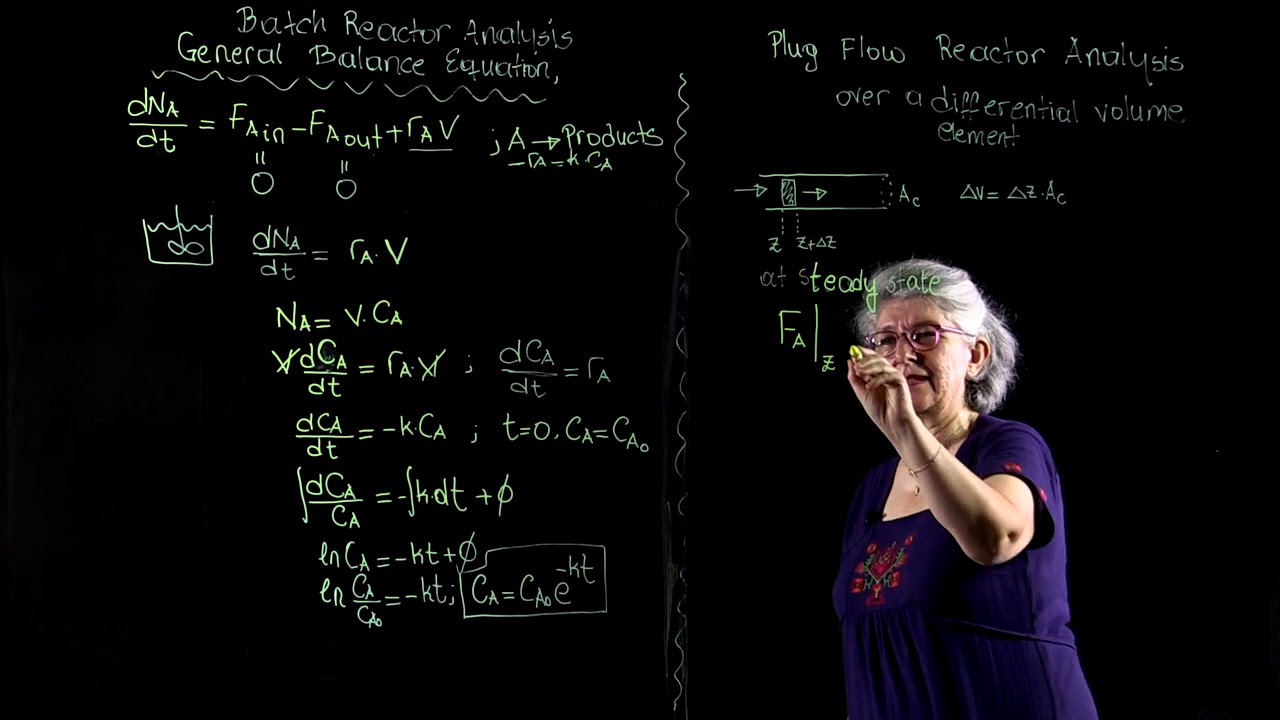 Batch Reactor Analysis
General Balance Equation,
dNA/dt = FA in - FA out + rA V ; A → Products
-rA = k·CA
= =
0 0
dNA/dt = rA·V
NA = V·CA
V dCA/dt = rA·V ; dCA/dt = rA
dCA/dt = -k·CA ; t=0, CA=CA0
∫dCA/CA = -∫k·dt + ϕ
ln CA = -kt + ϕ
ln CA/CA0 = -kt; CA = CA0 e^-kt
Plug Flow Reactor Analysis
over a differential volume
element
Ac ΔV = ΔZ·Ac
Z Z+ΔZ
at steady state
FA|Z